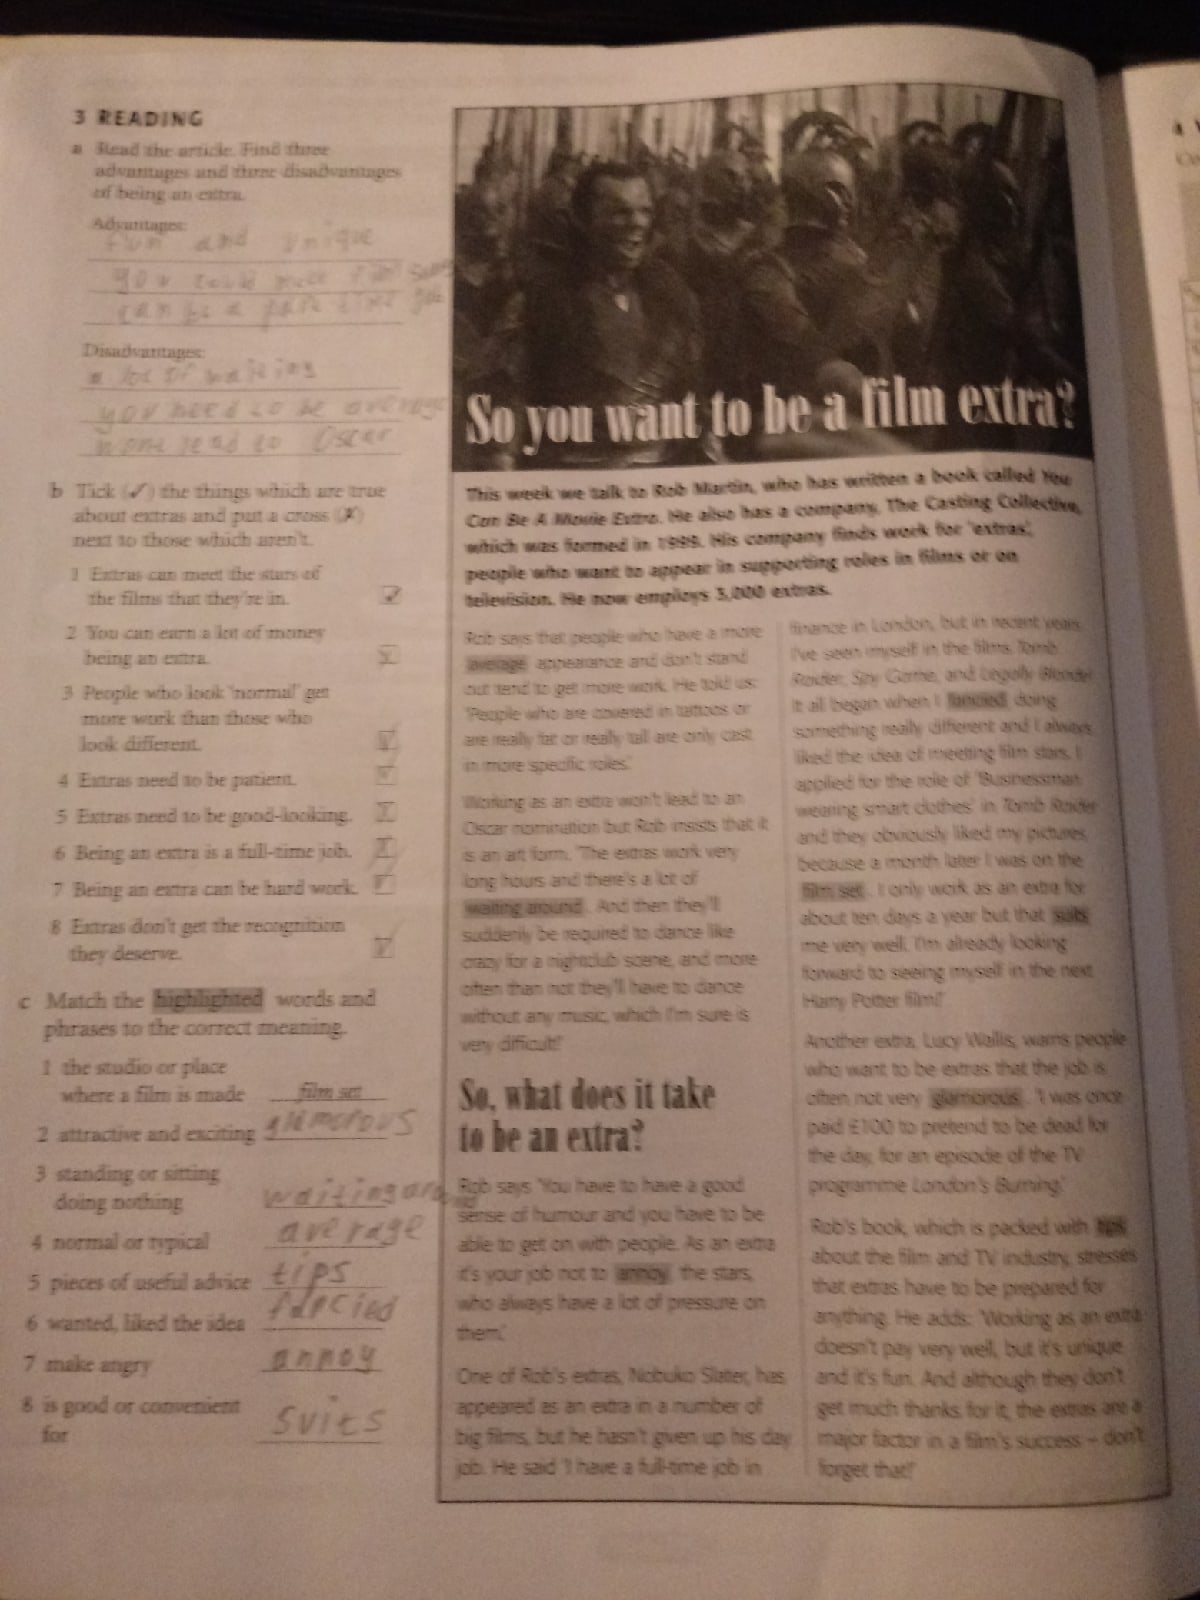 3 READING
a Read the article. Find three
advantages and three disadvantages
of being an extra.
Advantages:
fun and unique
you could meet film stars
can be a part time job
Disadvantages:
a lot of waiting
you need to be average
wont lead to Oscar
b Tick (✓) the things which are true
about extras and put a cross (✗)
next to those which aren't.
1 Extras can meet the stars of
the films that they're in. ✓
2 You can earn a lot of money
being an extra. X
3 People who look 'normal' get
more work than those who
look different. ✓
4 Extras need to be patient. ✓
5 Extras need to be good-looking. X
6 Being an extra is a full-time job. X
7 Being an extra can be hard work. ✓
8 Extras don't get the recognition
they deserve. ✓
c Match the highlighted words and
phrases to the correct meaning.
1 the studio or place
where a film is made film set
2 attractive and exciting glamorous
3 standing or sitting
doing nothing waiting around
4 normal or typical average
5 pieces of useful advice tips
6 wanted, liked the idea fancied
7 make angry annoy
8 is good or convenient
for suits
So you want to be a film extra?
This week we talk to Rob Martin, who has written a book called You
Can Be A Movie Extra. He also has a company, The Casting Collective,
which was formed in 1999. His company finds work for 'extras',
people who want to appear in supporting roles in films or on
television. He now employs 3,000 extras.
Rob says that people who have a more
average appearance and don't stand
out tend to get more work. He told us:
'People who are covered in tattoos or
are really fat or really tall are only cast
in more specific roles.'
Working as an extra won't lead to an
Oscar nomination but Rob insists that it
is an art form. 'The extras work very
long hours and there's a lot of
waiting around. And then they'll
suddenly be required to dance like
crazy for a nightclub scene, and more
often than not they'll have to dance
without any music, which I'm sure is
very difficult!'
So, what does it take
to be an extra?
Rob says 'You have to have a good
sense of humour and you have to be
able to get on with people. As an extra
it's your job not to annoy the stars,
who always have a lot of pressure on
them.'
One of Rob's extras, Nobuko Slater, has
appeared as an extra in a number of
big films, but he hasn't given up his day
job. He said 'I have a full-time job in
finance in London, but in recent years
I've seen myself in the films Tomb
Raider, Spy Game, and Legally Blonde!
It all began when I fancied doing
something really different and I always
liked the idea of meeting film stars. I
applied for the role of 'Businessman
wearing smart clothes' in Tomb Raider
and they obviously liked my pictures,
because a month later I was on the
film set. I only work as an extra for
about ten days a year but that suits
me very well. I'm already looking
forward to seeing myself in the next
Harry Potter film!'
Another extra, Lucy Wallis, warns people
who want to be extras that the job is
often not very glamorous. 'I was once
paid £100 to pretend to be dead for
the day, for an episode of the TV
programme London's Burning.'
Rob's book, which is packed with tips
about the film and TV industry, stresses
that extras have to be prepared for
anything. He adds: 'Working as an extra
doesn't pay very well, but it's unique
and it's fun. And although they don't
get much thanks for it, the extras are a
major factor in a film's success – don't
forget that!'